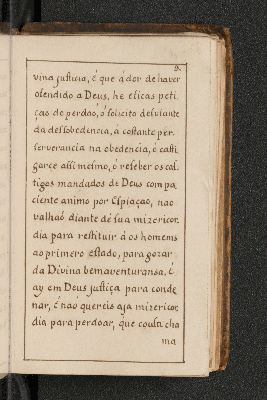 9.
vina justicia, é que á dor de haver
ofendido a Deus, he eficas peti-
çao de perdaó, ó solicito desviante
da desſobediencia, a costante per-
serverancia na obediencia, ó casti
garce assi mesmo, ó reseber os cas-
tigos mandados de Deus com pa
ciente animo por Espiaçao, nao
valhaó diante de sua mizericor-
dia para restituir á os homems
ao primero estado, para gozar
da Divina bemaventuransa. É
ay em Deus justiça para conde
nar, é naó quereis aja mizericor-
dia para perdoar, que cousa cha
ma